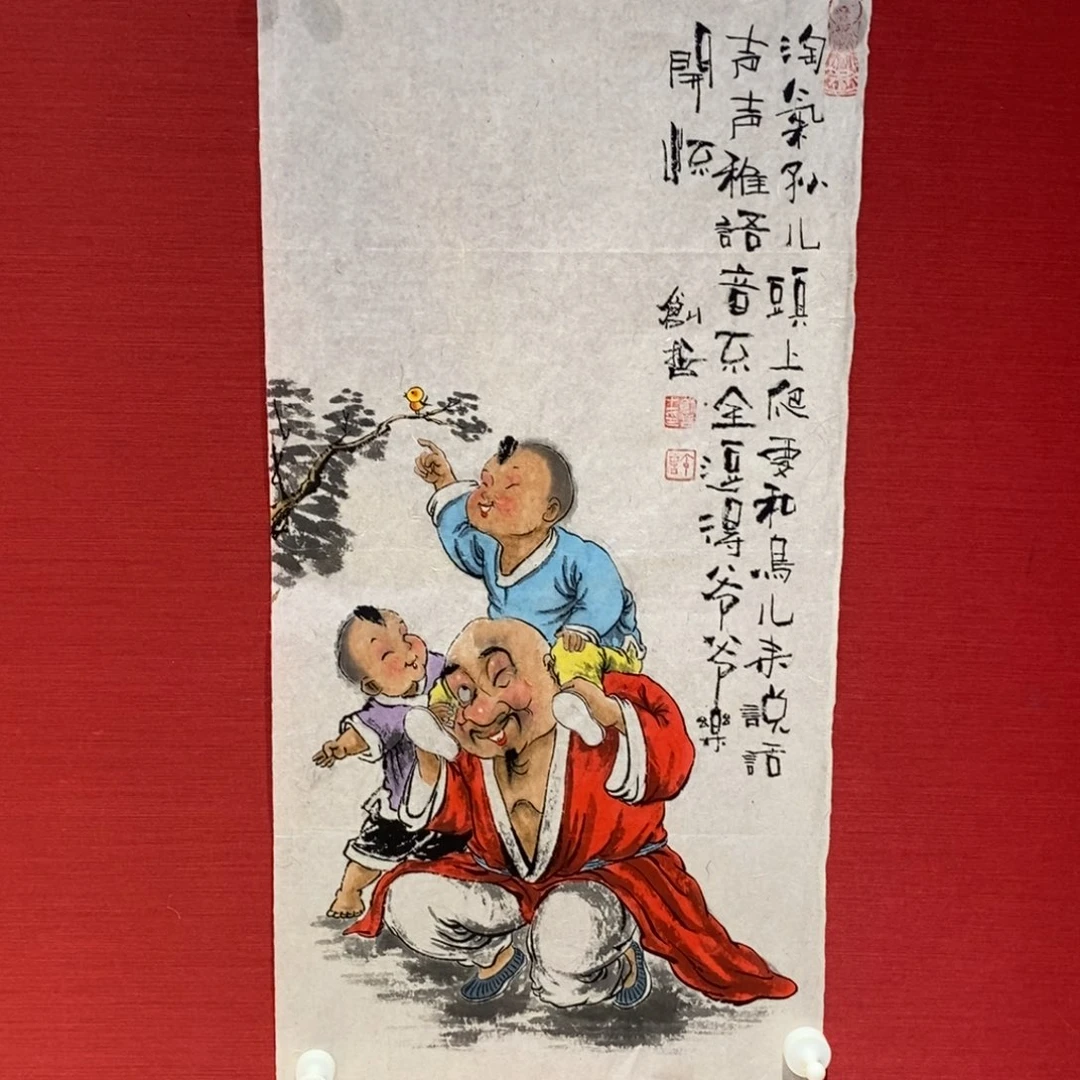 淘氣孙儿頭上爬要和鳥儿来説話
声声稚語音不全逗得爷爷樂
開怀